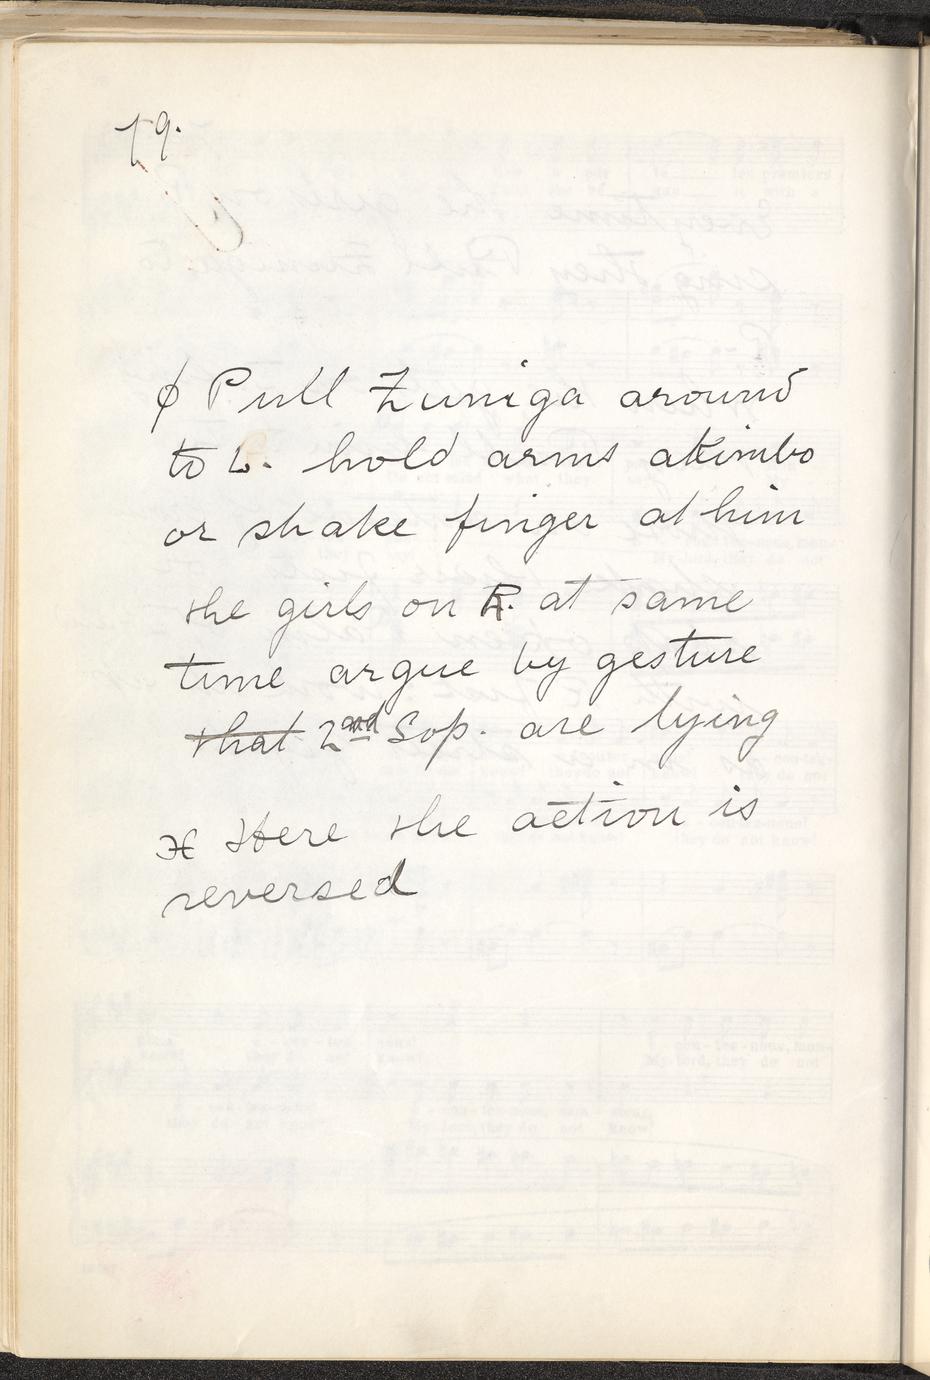 79.
ϕ Pull Zuniga around
to L. hold arms akimbo
or shake finger at him
the girls on R. at same
time argue by gesture
that 2nd Sop. are lying
Ж Here the action is
reversed